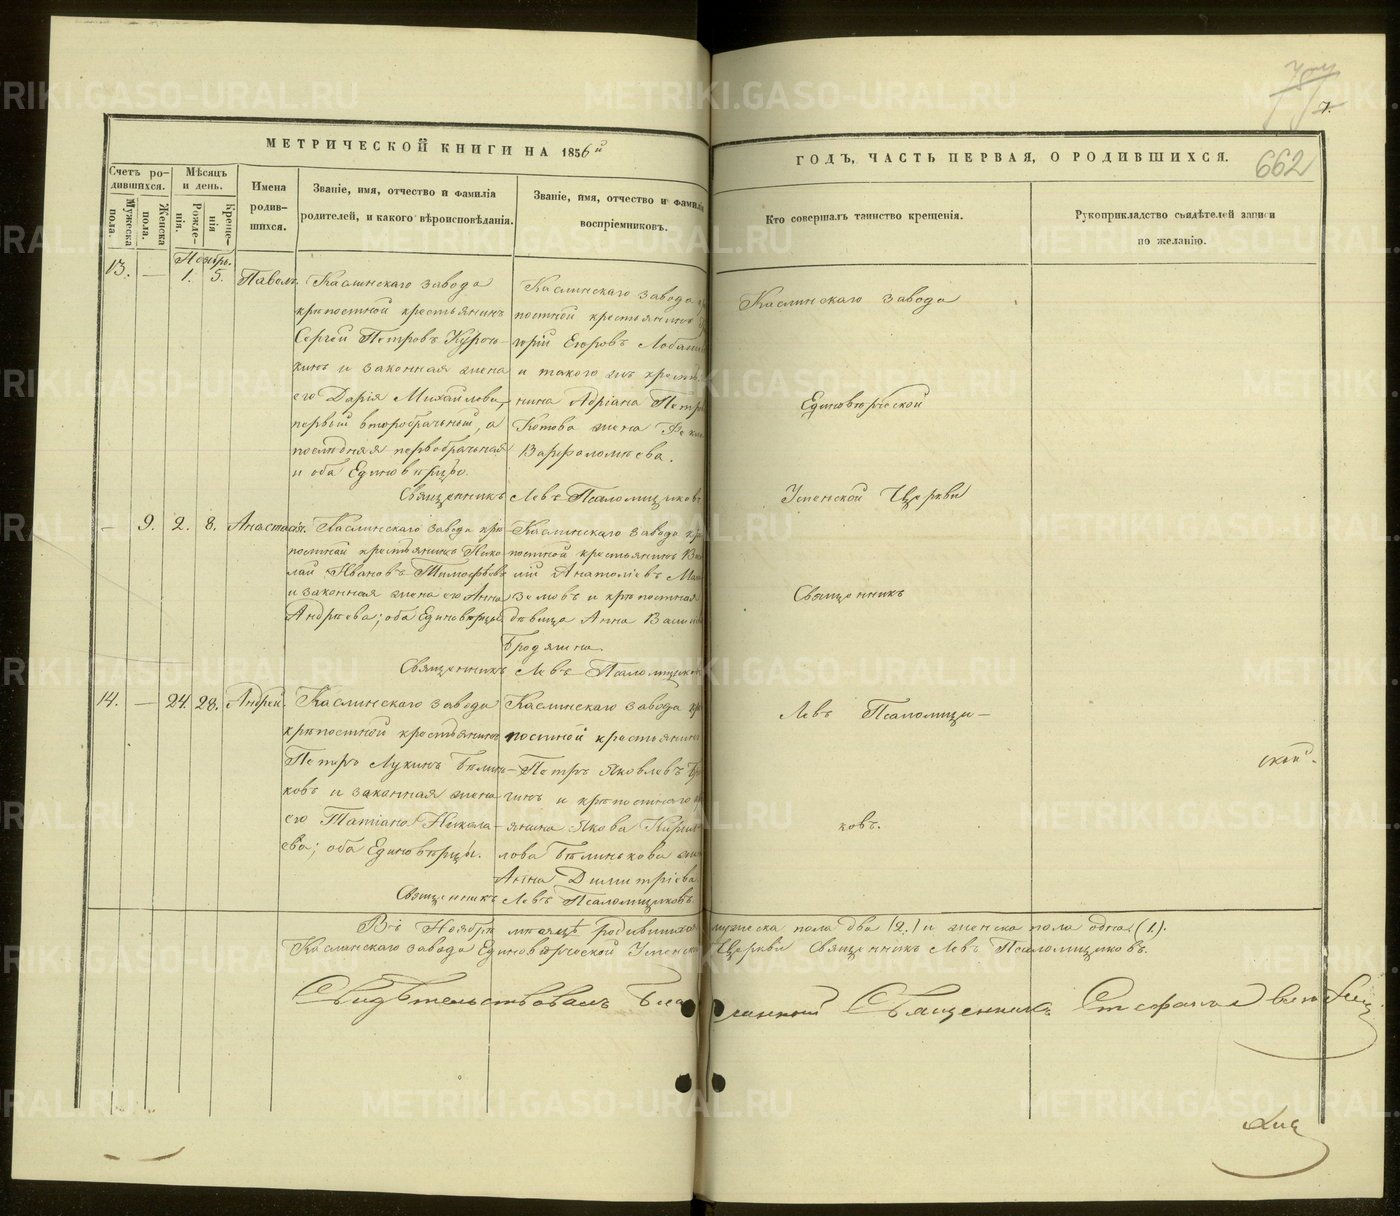 МЕТРИЧЕСКОЙ КНИГИ НА 1856й
ГОДЪ, ЧАСТЬ ПЕРВАЯ, О РОДИВШИХСЯ.
662
Счетъ ро-
дившихся.
Мужеска
пола.
Женска
пола.
Мѣсяцъ
и день.
Рожде-
нія.
Креще-
нія
Имена
родив-
шихся.
Званіе, имя, отчество и фамилія
родителей, и какого вѣроисповѣданія.
Званіе, имя, отчество и фамилія
воспріемниковъ.
Кто совершалъ таинство крещенія.
Рукоприкладство свидѣтелей записи
по желанію.
Ноябрь.
13. — 1. 5. Павелъ.
Каслинскаго завода
крѣпостной крестьянинъ
Сергей Петровъ Куроч-
кинъ и законная жена
его Дарія Михайлова,
первый второбрачный, а
послѣдняя первобрачная
и оба Единовѣрцы.
Каслинскаго завода
постной крестьянинъ
горій Егоровъ
и такого жъ кресть
нина Адріана Петр
Котова жена
Варфоломѣева.
Священникъ Левъ Псаломщиковъ
— 9. 2. 8. Анастасія.
Каслинскаго завода крѣ-
постной крестьянинъ Нико
лай Ивановъ Тимофѣевъ
и законная жена его Анна
Андрѣева; оба Единовѣрцы
Каслинскаго завода крѣ
постной крестьянинъ Ва
лій Анатоліевъ Ма
земовъ и крѣпостная
дѣвица Анна Васил
Бродягина.
Священникъ Левъ Псаломщиковъ
14. — 24. 28. Андрей.
Каслинскаго завода
крѣпостной крестьянинъ
Петръ Лукинъ Блинь-
ковъ и законная жена
его Татіана Никола-
ева; оба Единовѣрцы.
Каслинскаго завода
постной крестьянинъ
Петръ Яковлевъ
гинъ и крѣпостнаго
янина Якова Кирил
лова Блинькова
Анна Димитріева
Священникъ Левъ Псаломщиковъ.
Каслинскаго завода
Единовѣрческой
Успенской Церкви
Священникъ
Левъ Псаломщи-
ковъ.
ской.
Въ Ноябрѣ мѣсяцѣ родившихся мужеска пола два (2.) и женска пола одна (1).
Каслинскаго завода Единовѣрческой Успенской Церкви Священникъ Левъ Псаломщиковъ.
Свидѣтельствовалъ Священникъ
METRIKI.GASO-URAL.RU